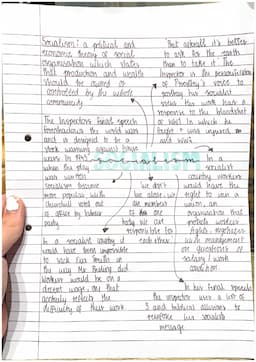 Socialism: a political and
economic theory of social
organisation which states
that production and wealth
should be owned or
controlled by the whole
community.
The Inspectors final speech
foreshadows the world wars
and is designed to be a
stark warning against
wars in 1945
when the play
was written
socialism became
more popular while
Churchill voted out
of office by labour
party
In a socialist country it
would have been impossible
to sack Eva Smith in
the way Mr Birling did.
Workers would be on a
decent wage, one that
actually reflects the
difficulty of their work
But overall it's better
to ask for the earth
than to take it. The
Inspector is the personification
of Priestley's voice to
portray his socialist
views. This work was a
response to the bloodshot
of WW1 in which he
fought + was injured
and WWII
socialism
we don't
live alone, we
are members
of one
responsible for
each other
In a
socialist
country workers
would have the
right to join a
union, an
organisation that
protects workers
rights, negotiates
with management
on questions of
salary / work
condition.
In his final speech
the inspector uses a list of
3 and biblical allusions to
reinforce his socialist
message